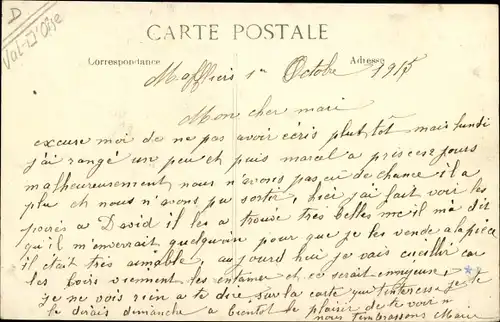 D
Val-D'Oise
CARTE POSTALE
Correspondance
Adresse
Maffliers 1er Octobre 1915
Mon cher mari
excuse moi de ne pas avoir écris plutôt mais lundi
j'ai rangé un peu et puis marcel a pris ces jours
malheureusement nous n'avons pas eu de chance il a
plu et nous n'avons pu sortir, hier j'ai fait voir les
poires a David il les a trouvé très belles il m'a dit
qu'il m'enverrait quelqu'un pour que je les vende a la pièce
il était très aimable, aujourd hui je vais cueillir car
les bois viennent les entamer et ce serait ennuyeux,
je ne vois rien a te dire sur la carte qui t'interesse je te
le dirais dimanche a bientot le plaisir de te voir
nous t'embrassons Marie